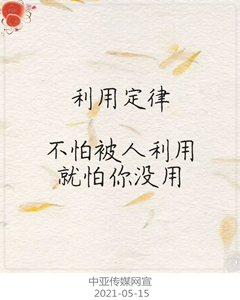 利用定律
不怕被人利用
就怕你没用
中亚传媒网宣
2021-05-15